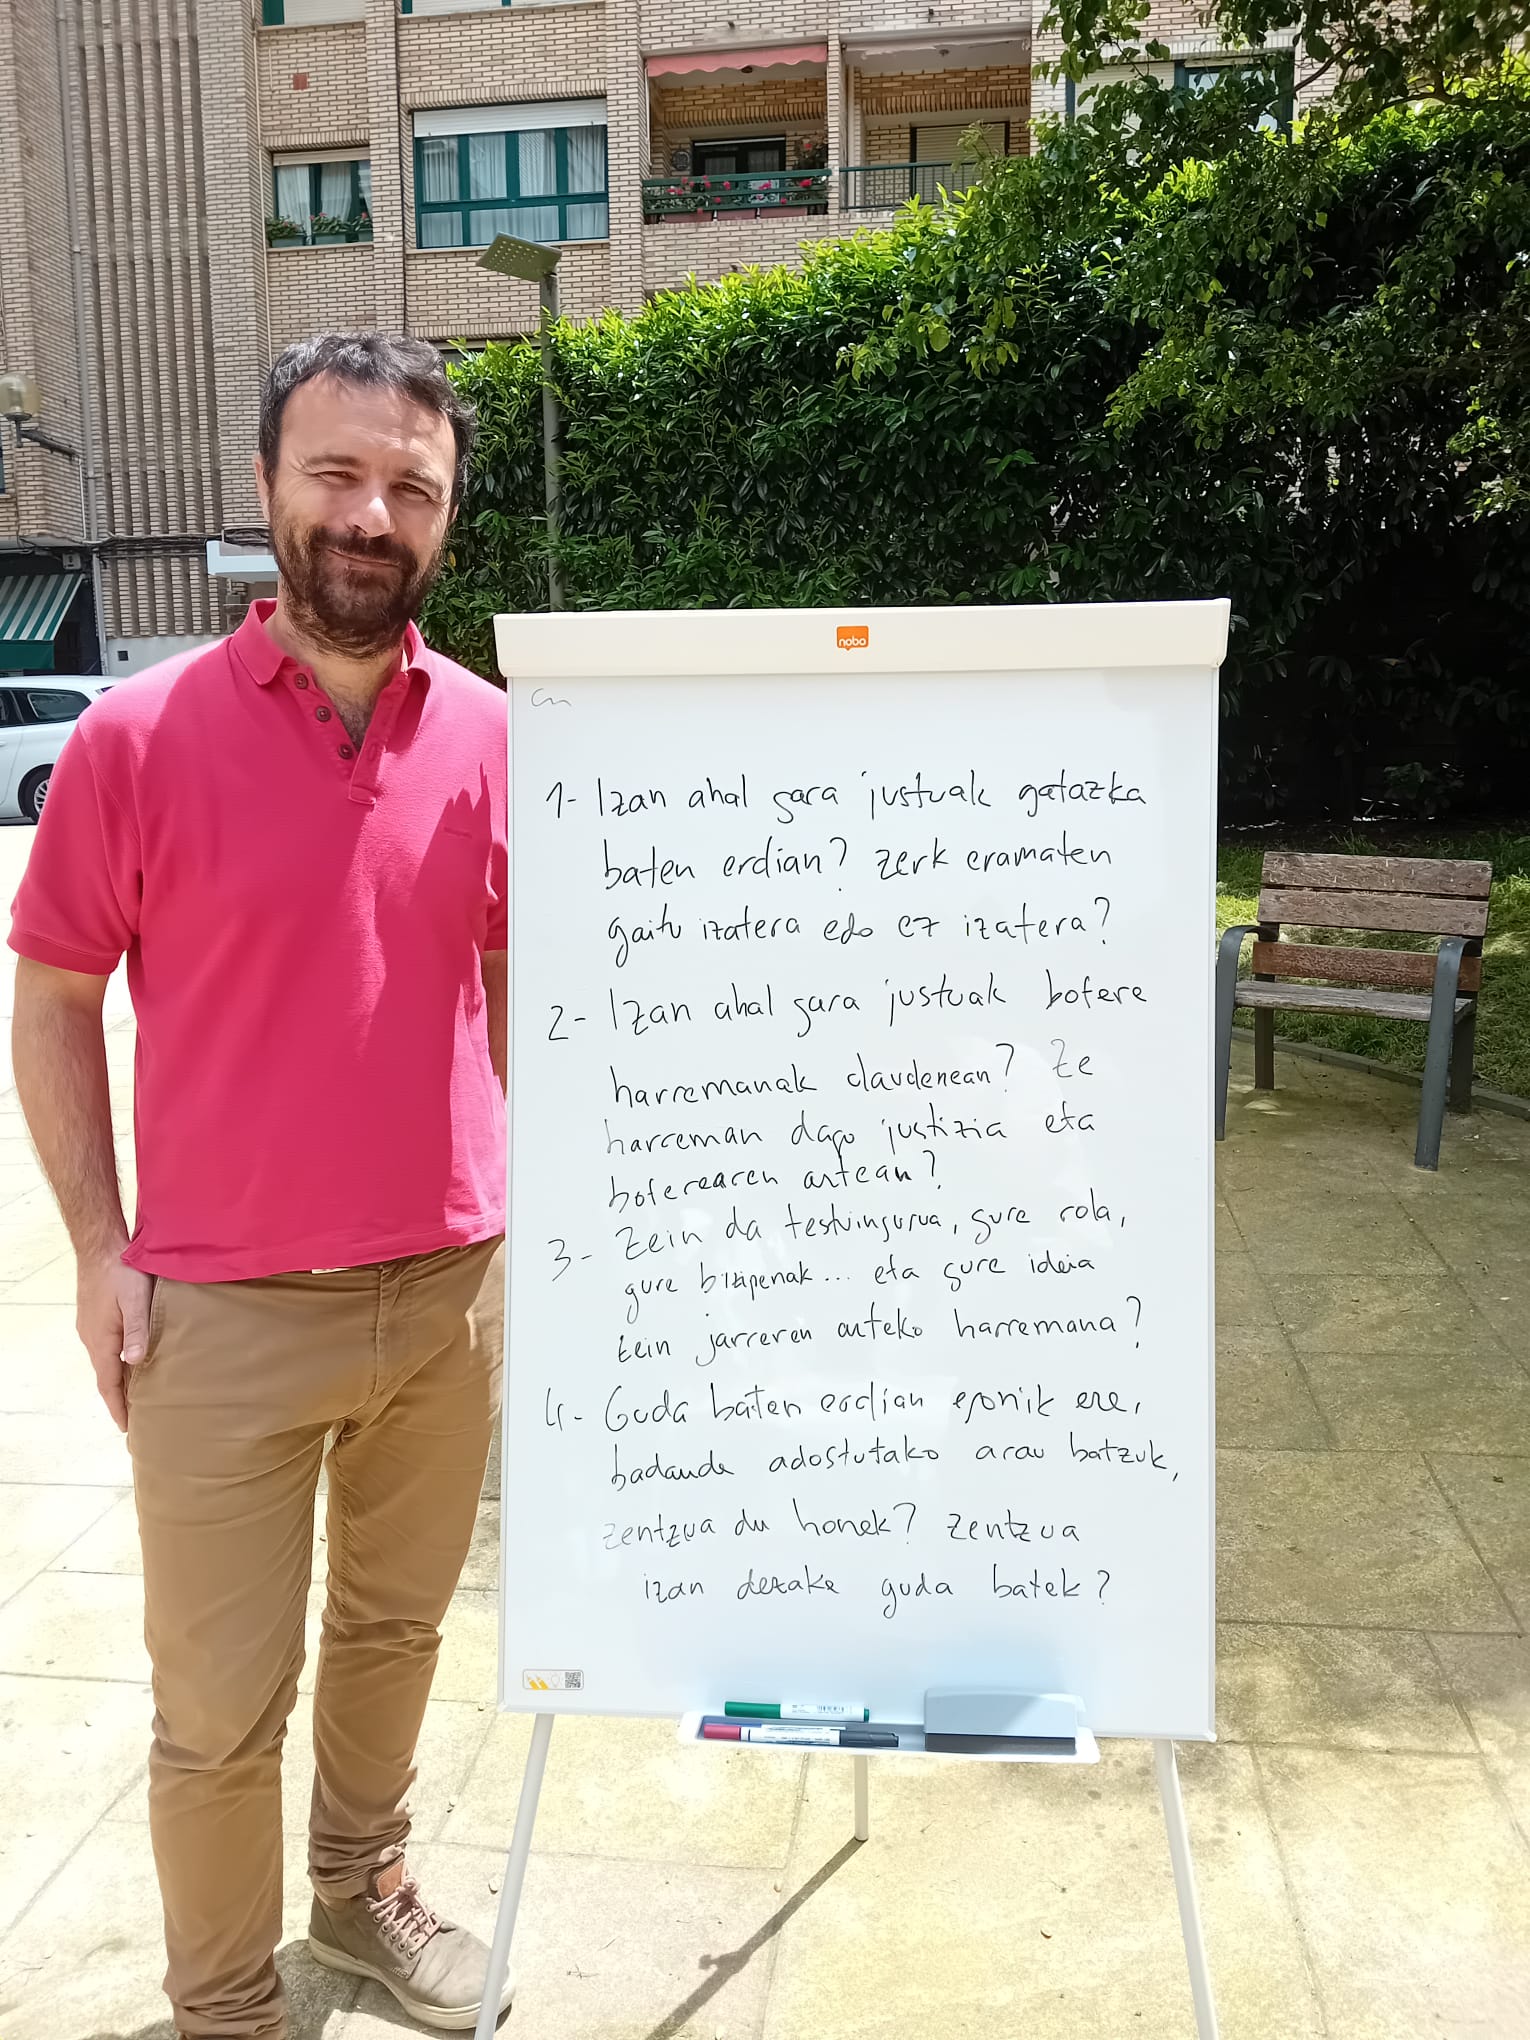 nobo
1- Izan ahal gara justuak gatazka
baten erdian? zerk eramaten
gaitu izatera edo ez izatera?
2- Izan ahal gara justuak botere
harremanak daudenean? Ze
harreman dago justizia eta
boterearen artean?
3- Zein da testuingurua, gure rola,
gure bizipenak... eta gure ideia
zein jarreren arteko harremana?
4- Guda baten erdian egonik ere,
badaude adostutako arau batzuk,
zentzua du honek? zentzua
izan dezake guda batek?